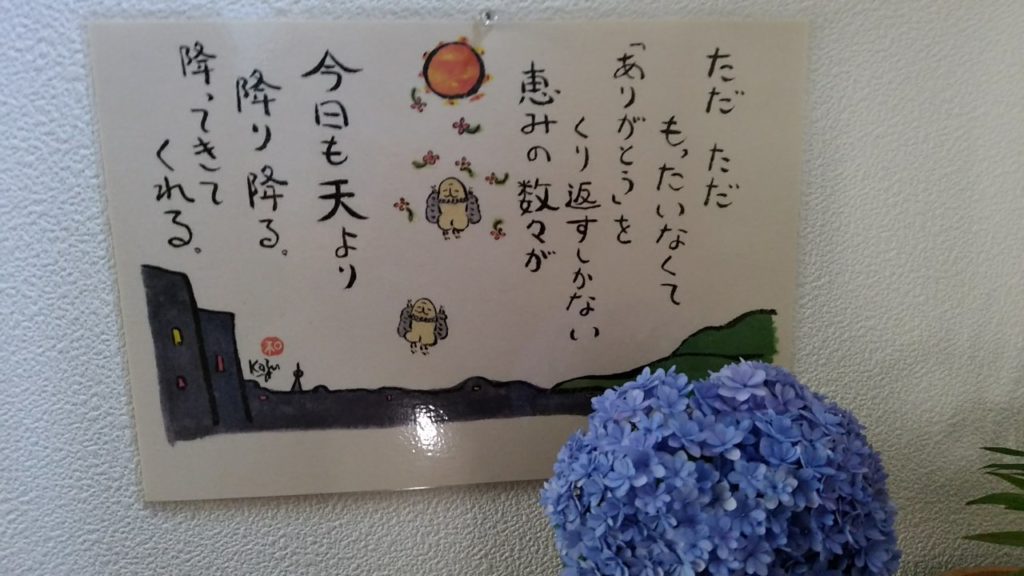 ただ ただ
もったいなくて
「ありがとう」を
くり返すしかない
恵みの数々が
今日も天より
降り降る。
降ってきて
くれる。
和